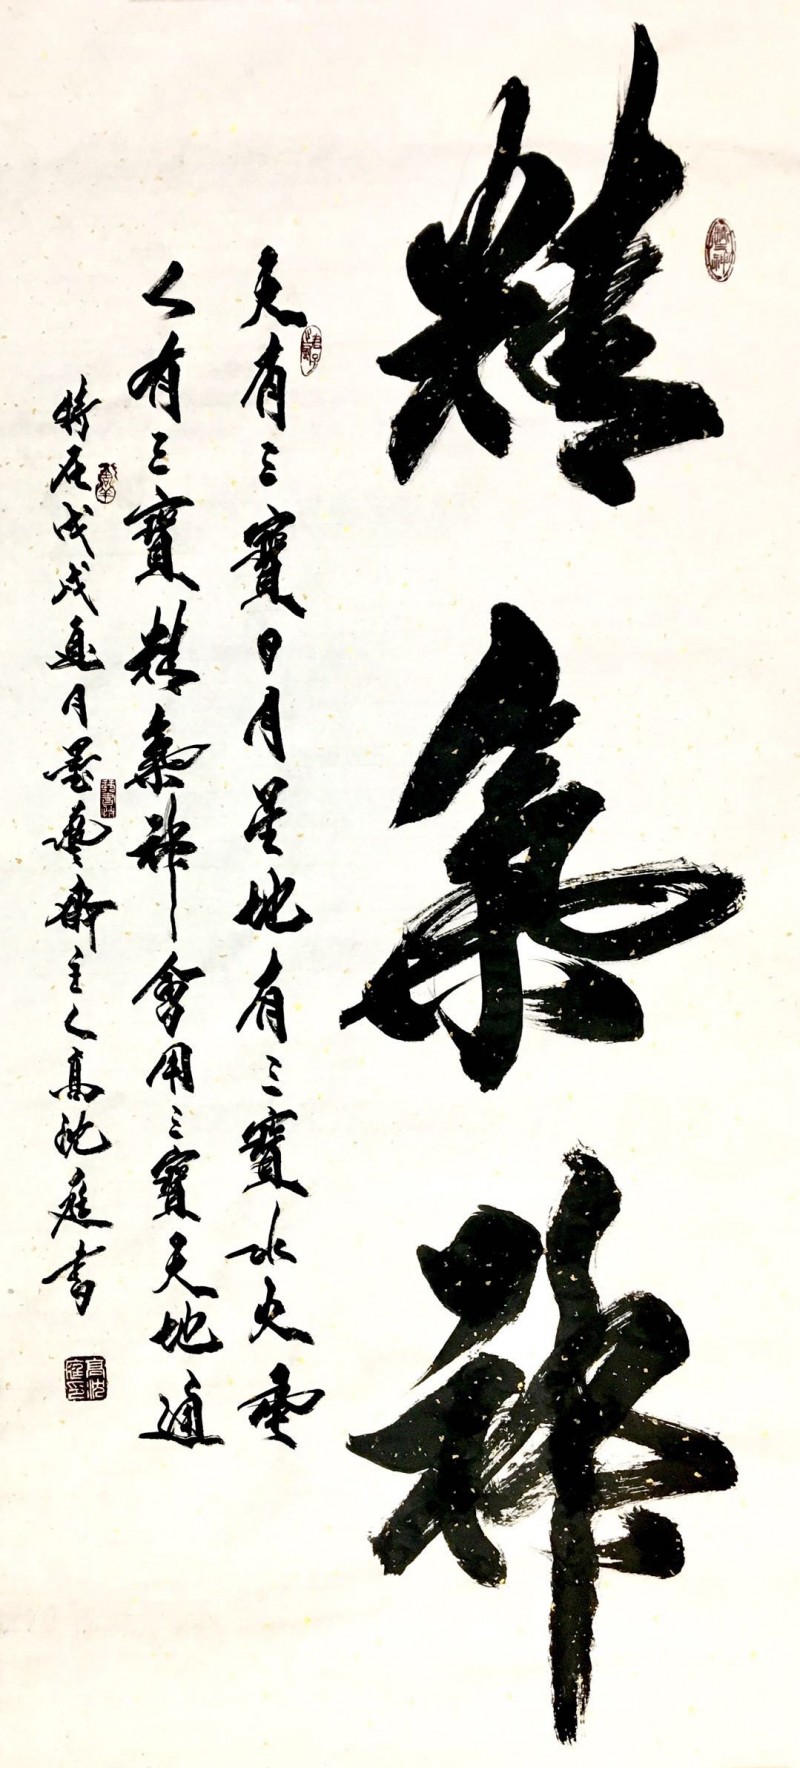 精氣神
天有三寶日月星地有三寶水火電
人有三寶精氣神會用三寶天地通
時在戊戌夏月墨藝齋主人高沈庭書
高沈庭印